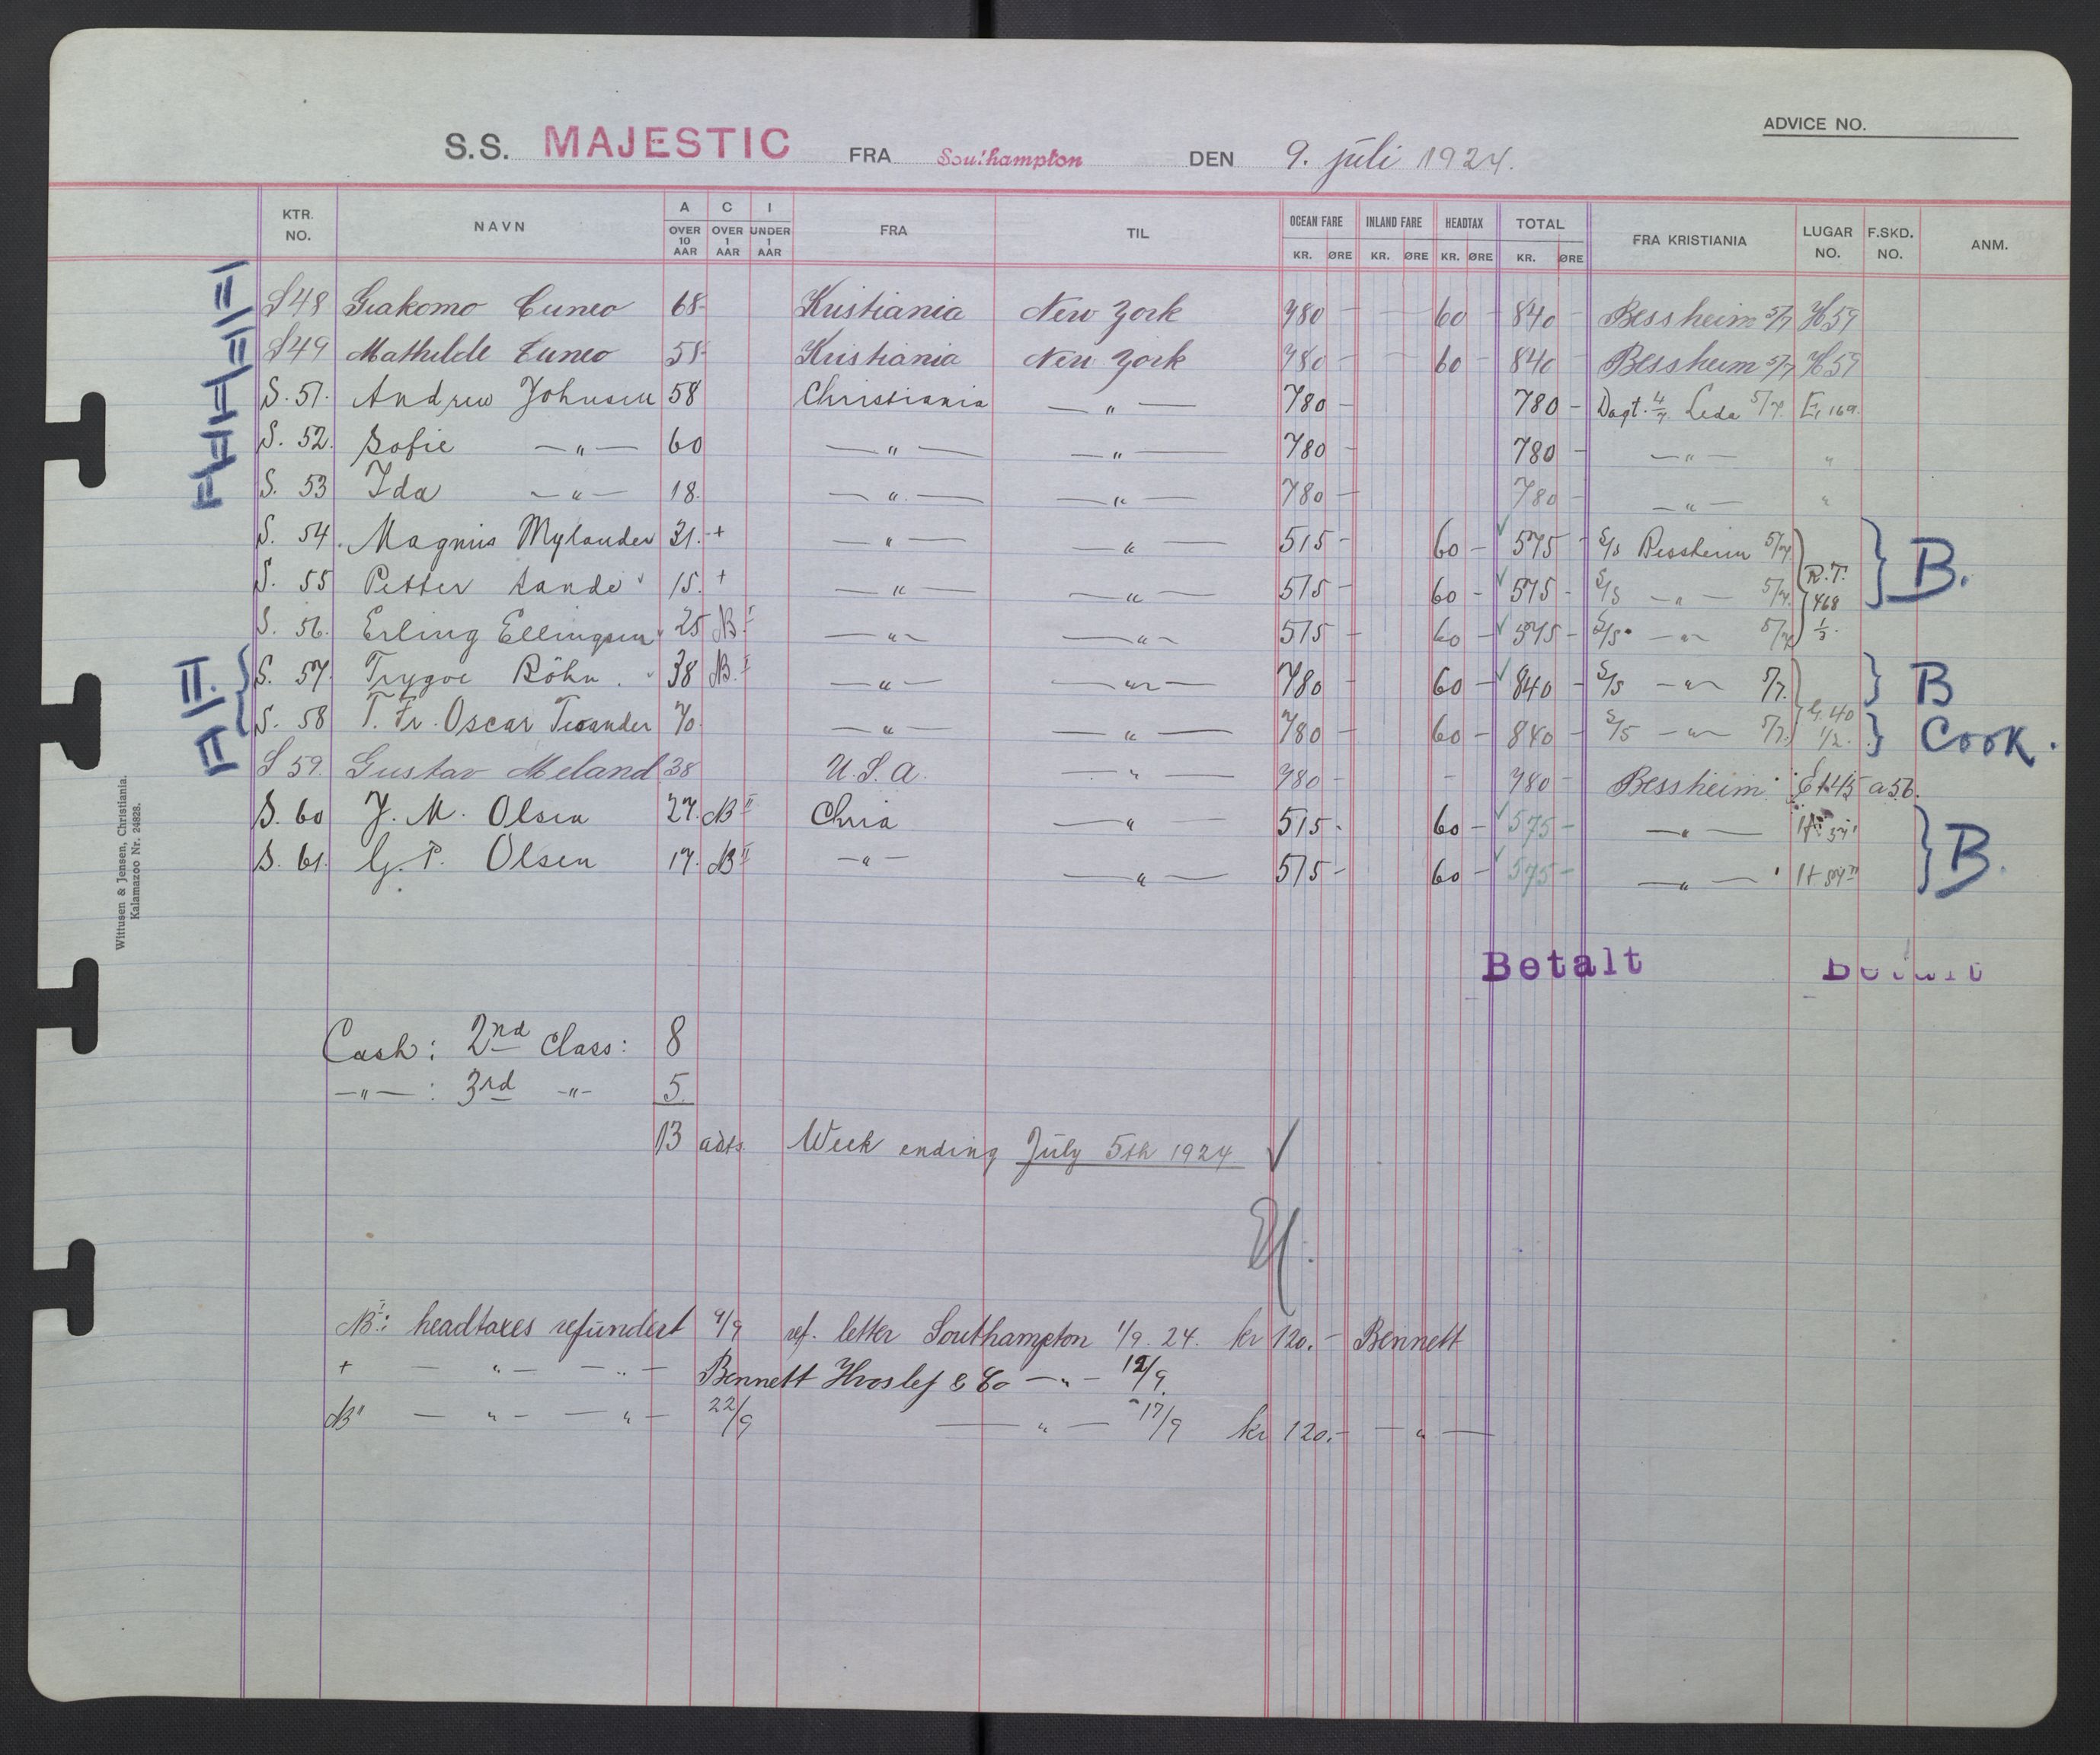 ADVICE NO.
S.S. MAJESTIC FRA Southampton DEN 9. juli 1924.
KTR. NO. NAVN A OVER 10 AAR C OVER 1 AAR I UNDER 1 AAR FRA TIL OCEAN FARE KR. ØRE INLAND FARE KR. ØRE HEADTAX KR. ØRE TOTAL KR. ØRE FRA KRISTIANIA LUGAR NO. F.SKD. NO. ANM.
S 48 Giakomo Cuneo 68- Kristiania New York 780 - 60 - 840 - Bessheim 5/7 H59
S 49 Mathilde Cuneo 58- Kristiania New York 780 - 60 - 840 - Bessheim 5/7 H59
S. 51. Andrew Johnsen 58 Christiania — " — 780 - 780 - Dagt. 4/7 Leda 5/7. E, 169.
S. 52. Sofie — " — 60 — " — — " — 780 - 780 - — " — "
S. 53 Ida — " — 18. — " — — " — 780 - 780 - — " — "
S. 54. Magnus Mylander 31. + — " — — " — 515 - 60 - 575 - S/S Bessheim 5/7 B.
S. 55 Petter Sande 15. + — " — — " — 515 - 60 - 575 - S/S — " — 5/7. R.T. 468
S. 56. Erling Ellingsen 25 NB I — " — — " — 515 - 60 - 575 - S/S — " — 5/7 1/3.
II. S. 57. Trygve Röhn. 38 NB. I — " — — " — 780 60 - 840 - S/S — " — 5/7. B
II S. 58 T. Fr. Oscar Tesander 70. — " — — " — 780 - 60 - 840 - S/S — " — 5/7. G. 40 1/2. Cook.
S 59. Gustav Meland 38 U.S.A. — " — 780 - - 780 - Bessheim E 145 a 56.
S. 60 J. M. Olsen 27. NB II Chria — " — 515 - 60 - 575 - — " — B.
S. 61. G. P. Olsen 17. NB II — " — — " — 515 - 60 - 575 - — " —
Wittusen & Jensen, Christiania.
Kalamazoo Nr. 24828.
Betalt Betalt
Cash: 2nd class: 8
— " — : 3rd — " — 5.
13 adts. Week ending July 5th 1924
NB I: headtaxes refundert 4/9 ref. letter Southampton 1/9. 24. kr 120.- Bennett
+ — " — — " — Bennett Hroslef & Co — " — 12/9.
NB II — " — — " — 22/9 — " — 17/9 kr 120.- — " —